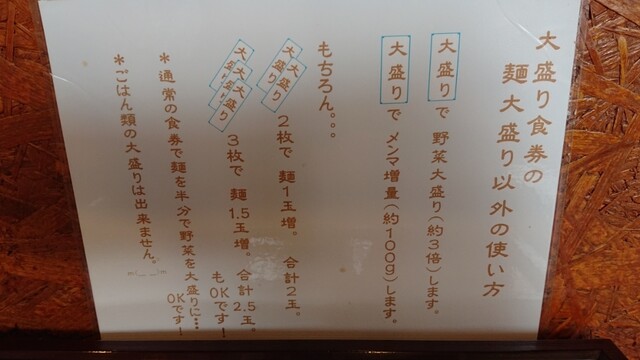 大盛り食券の
麺大盛り以外の使い方
大盛りで 野菜大盛り(約3倍)します。
大盛りで メンマ増量(約100g)します。
もちろん。。。
大盛り大盛り 2枚で 麺1玉増。 合計2玉。
大盛り大盛り大盛り 3枚で 麺1.5玉増。 合計2.5玉。
もOKです!
*通常の食券で麺を半分で野菜を大盛りに…OKです!
*ごはん類の大盛りは出来ません。